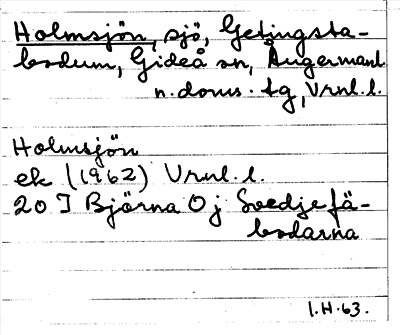 Holmsjön, sjö, Getingsta-
bodum, Gideå sn, Ångermanl.
n. doms. tg, Vrnl. l.
Holmsjön
ek (1962) Vrnl. l.
20 I Björna O j Svedjefä-
bodarna
I.H.63.